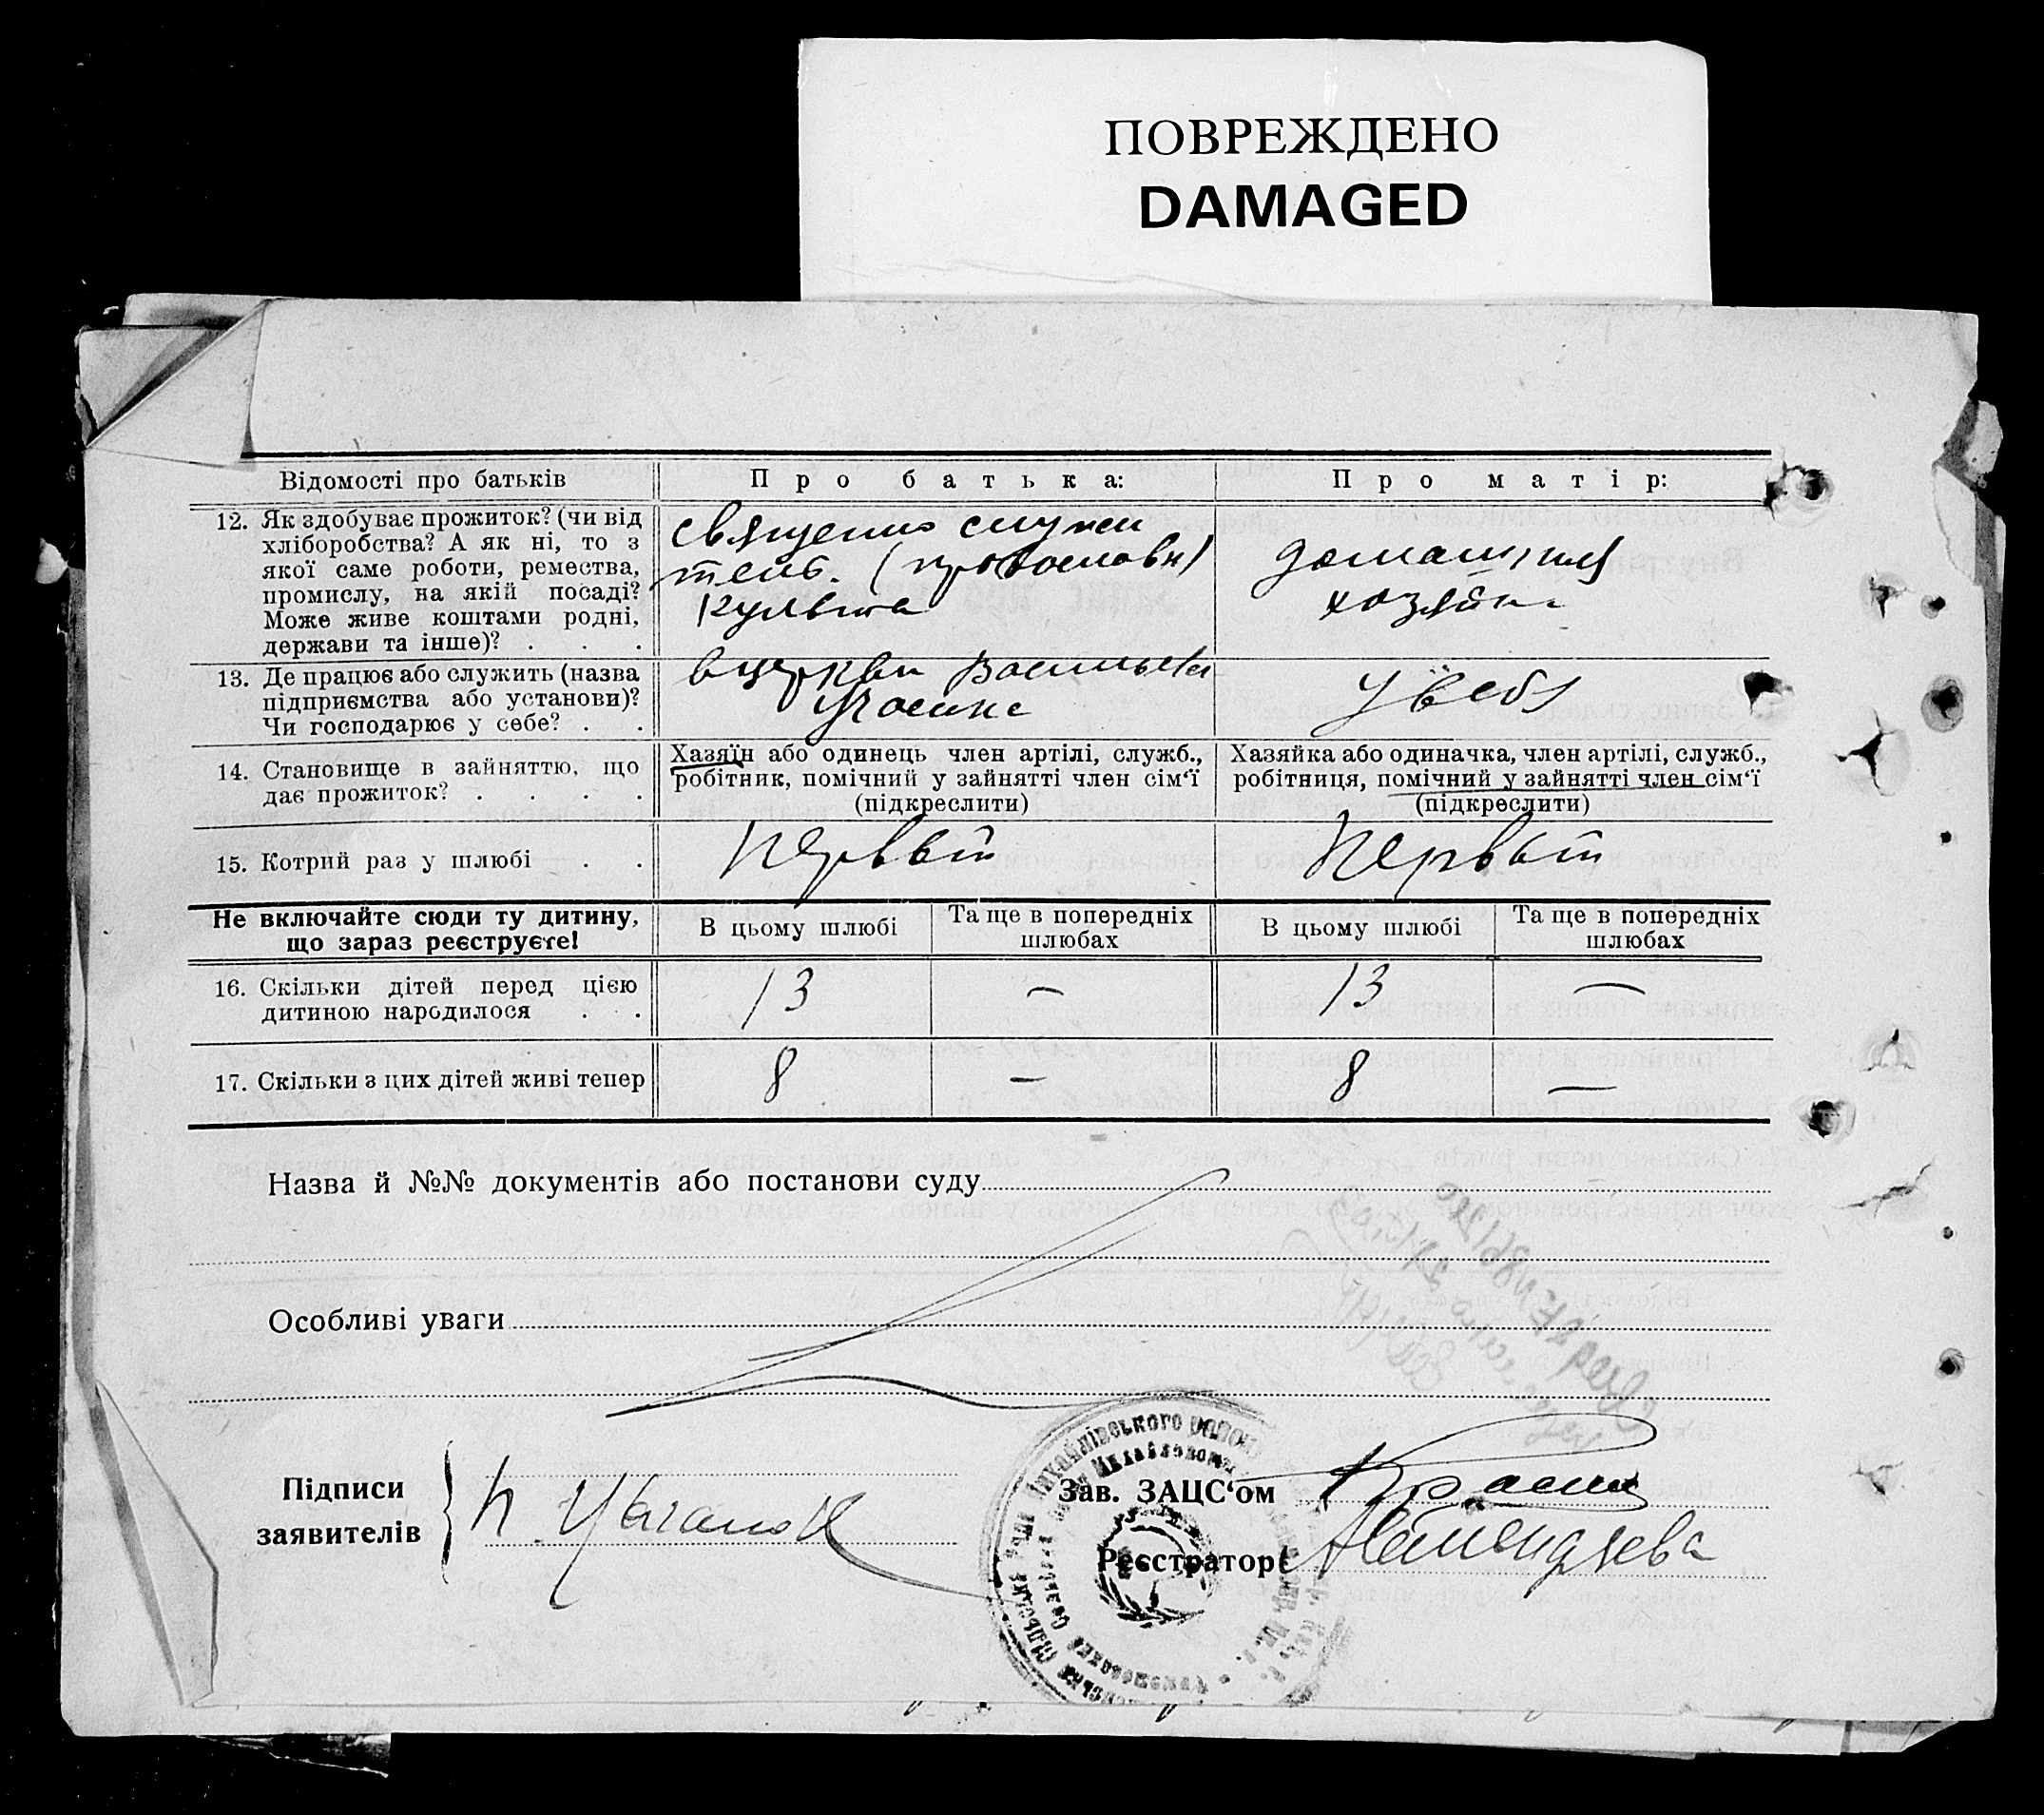 ПОВРЕЖДЕНО
DAMAGED
Відомості про батьків
Про батька:
Про матір:
12. Як здобуває прожиток? (чи від
хліборобства? А як ні, то з
якої саме роботи, ремества,
промислу, на якій посаді?
Може живе коштами родні,
держави та інше)? . . .
священо служи
тель. (православн)
культа
домашняя
хозяйка
13. Де працює або служить (назва
підприємства або установи)?
Чи господарює у себе? . .
в церкви Васильев
у себя
14. Становище в зайняттю, що
дає прожиток? . . . .
Хазяїн або одинець член артілі, служб.,
робітник, помічний у зайнятті член сім‘ї
(підкреслити)
Хазяйка або одиначка, член артілі, служб.,
робітниця, помічний у зайнятті член сім‘ї
(підкреслити)
15. Котрий раз у шлюбі . .
Первый
Первый
Не включайте сюди ту дитину,
що зараз реєструєте!
В цьому шлюбі
Та ще в попередніх
шлюбах
В цьому шлюбі
Та ще в попередніх
шлюбах
16. Скільки дітей перед цією
дитиною народилося . .
13
—
13
—
17. Скільки з цих дітей живі тепер
8
—
8
—
Назва й №№ документів або постанови суду
Особливі уваги
Підписи
заявителів
П. Цыганок
Зав. ЗАЦС‘ом
Реєстратор